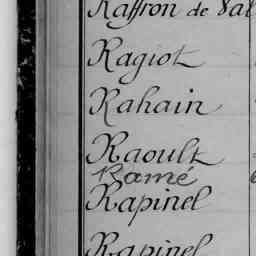 Raffron de Val
Ragiot
Rahain
Raoult
Ramé
Rapinel
Rapinel